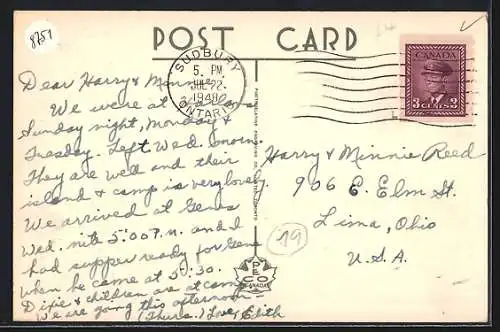 8751
POST CARD
SUDBURY
5 PM
JUL 22
1948
ONTARIO
CANADA
3 CENTS 3
Dear Harry & Minnie
We were at
Sunday night, Monday &
Tuesday. Left Wed. morn.
They are well and their
island & camp is very lovely.
We arrived at Genes
Wed. nite 5:00 P.M. and I
had supper ready for Gene
when he came at 5:30.
Dixie & children are at camp
We are going this afternoon
(Thurs.) Love, Edith
Harry & Minnie Reed
906 E. Elm St.
Lima, Ohio
U.S.A.
19
PECO